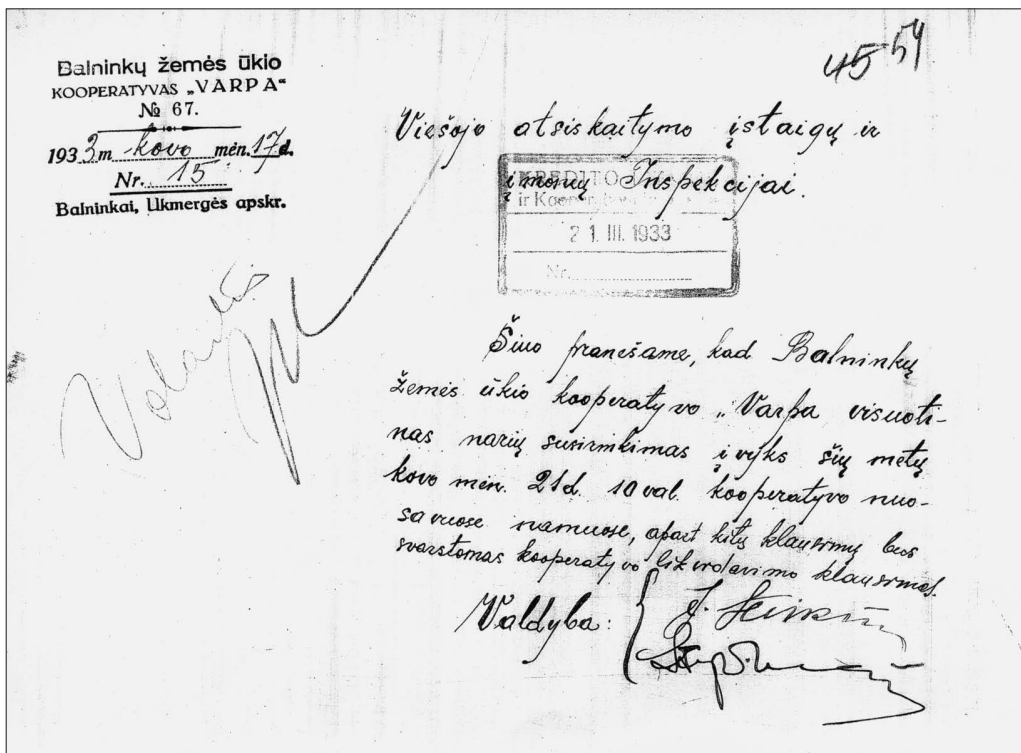 Balninkų žemės ūkio
KOOPERATYVAS „VARPA“
№ 67.
1933 m kovo mėn. 17 d.
Nr. 15
Balninkai, Ukmergės apskr.
45 54
Viešojo atsiskaitymo įstaigų ir
įmonių Inspekcijai.
KREDITO
ir Kooper
21. III. 1933
Nr.
Šiuo pranešame, kad Balninkų
žemės ūkio kooperatyvo „Varpa visuoti-
nas narių susirinkimas įvyks šių metų
kovo mėn. 21 d. 10 val. kooperatyvo nuo-
savuose namuose, apart kitų klausimų bus
svarstomas kooperatyvo likvidavimo klausimas.
Valdyba: